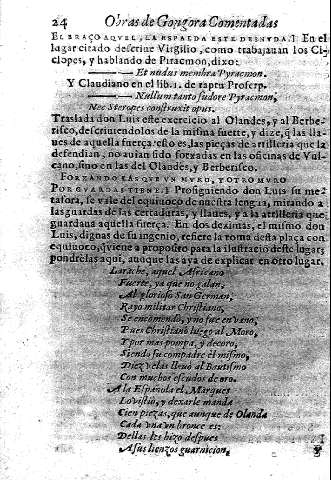 24 Obras de Gongora Comentadas
EL BRAÇO AQVEL, LA ESPALDA ESTE DESNVDA.] En el
lugar citado descriue Virgilio, como trabajauan los Ci-
clopes, y hablando de Piracmon, dixo:
Et nudus membra Pyracmon.
Y Claudiano en el lib. 1. de raptu Proserp.
Nullum tanto sudore Pyracmon,
Nec Steropes construxit opus.
Traslada don Luis este exercicio al Olandes, y al Berbe-
risco, descriuiendolos de la misma suerte, y dize, q̃ las lla-
ues de aquella fuerça: esto es, las pieças de artilleria que la
defendian, no auian sido forxadas en las oficinas de Vul-
cano, sino en las del Olandes, y Berberisco,
FORZANDO MAS QVE VN MVRO, Y OTRO MVRO
POR GVARDAS TIENE.] Prosiguiendo don Luis su me-
tafora, se vale del equiuoco de nuestra lengua, mirando a
las guardas de las cerraduras, y llaues, y a la artilleria que
guardaua aquella fuerça. En dos dezimas, el mismo don
Luis, dignas de su ingenio, refiere la toma desta plaça con
equiuoco, q̃ viene a proposito para la ilustració deste lugar;
pondrelas aqui, aunque las aya de explicar en otro lugar.
Larache, aquel Africano
Fuerte, ya que no galan,
Al glorioso San German,
Rayo militar Christiano,
Se encomendó, y no fue en vano,
Pues Christianò luego al Moro,
Y por mas pompa, y decoro,
Siendo su compadre èl mismo,
Diez velas lleuò al Bautismo
Con muchos escudos de oro.
A la Española el Marques
Lo vistiò, y dexarle manda
Cien pieças, que aunque de Olanda
Cada vna vn bronce es:
Dellas les hizo despues
A sus lienzos guarnicion,